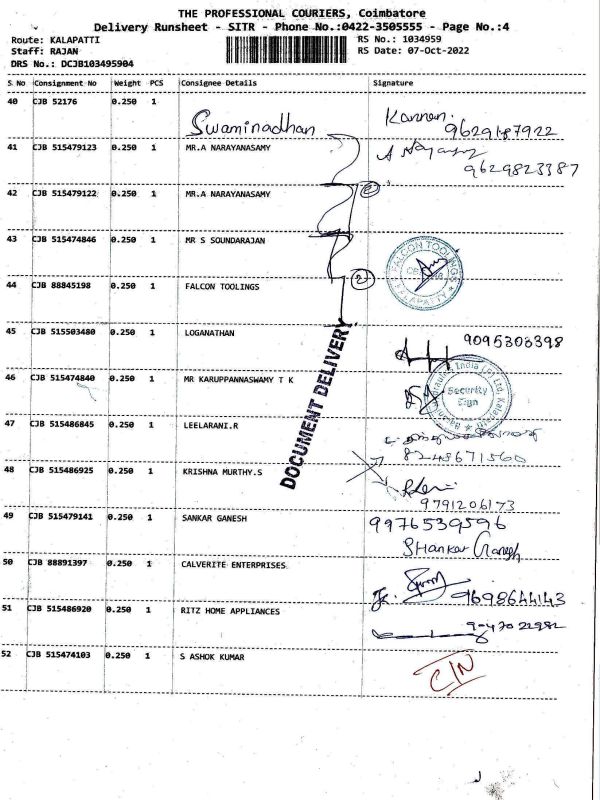 THE PROFESSIONAL COURIERS, Coimbatore
Delivery Runsheet - SITR - Phone No.:0422-3505555 - Page No.:4
Route: KALAPATTI
RS No.: 1034959
Staff: RAJAN
RS Date: 07-Oct-2022
DRS No.: DCJB103495904
S No Consignment No Weight PCS Consignee Details Signature
40 CJB 52176 0.250 1 Swaminadhan Kannan.
9629187922
41 CJB 515479123 0.250 1 MR.A NARAYANASAMY
9629823387
42 CJB 515479122 0.250 1 MR.A NARAYANASAMY
2
43 CJB 515474846 0.250 1 MR S SOUNDARAJAN
FALCON TOOLINGS
KALAPATTY
44 CJB 88845198 0.250 1 FALCON TOOLINGS
2
45 CJB 515503480 0.250 1 LOGANATHAN 9095308398
DOCUMENT DELIVERY
46 CJB 515474840 0.250 1 MR KARUPPANNASWAMY T K
Security
Sign
47 CJB 515486845 0.250 1 LEELARANI.R
8248671560
48 CJB 515486925 0.250 1 KRISHNA MURTHY.S
9791206173
49 CJB 515479141 0.250 1 SANKAR GANESH 9976539596
SHankar Ganesh
50 CJB 88891397 0.250 1 CALVERITE ENTERPRISES
9698644143
51 CJB 515486920 0.250 1 RITZ HOME APPLIANCES
52 CJB 515474103 0.250 1 S ASHOK KUMAR
C/N